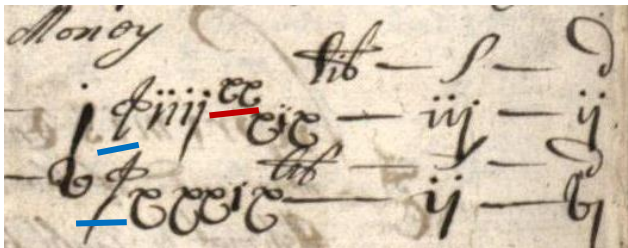 Money lib — s — d
j iiij xx xix — iij — ij
lib — s — d
xxxix — ij — vj